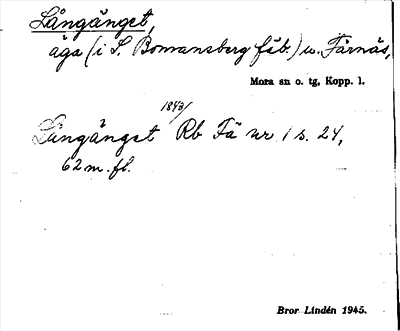 Långänget,
äga (i S. Bomansberg fäb.) u. Färnäs,
Mora sn o. tg, Kopp. l.
1843/
Långänget Rb Fä nr 1 s. 24,
62 m. fl.
Bror Lindén 1945.